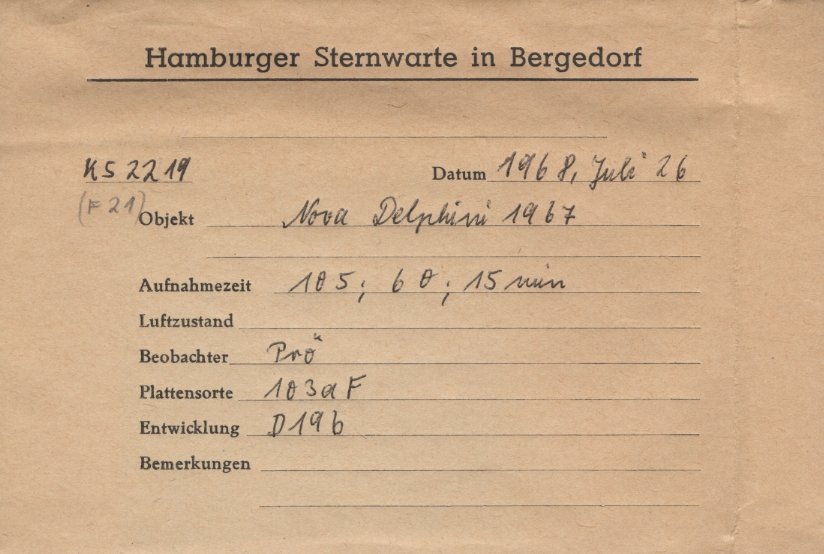 Hamburger Sternwarte in Bergedorf
KS 2219 Datum 1968, Juli 26
(F 21) Objekt Nova Delphini 1967
Aufnahmezeit 105; 60; 15 min
Luftzustand
Beobachter Prö
Plattensorte 103aF
Entwicklung D19b
Bemerkungen